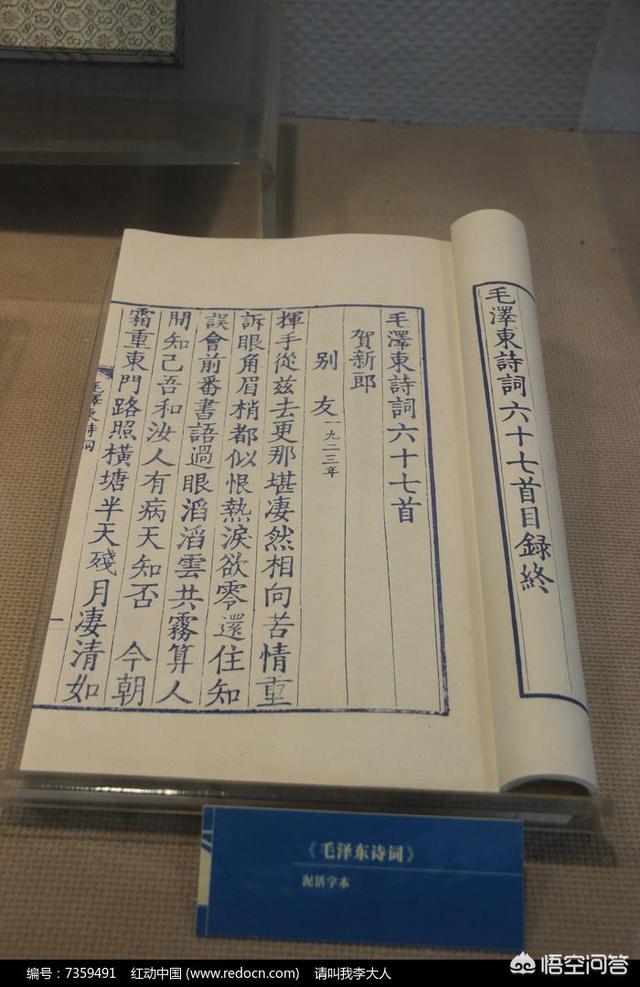 毛澤東詩詞六十七首目録終
毛澤東詩詞六十七首
賀新郎
别友一九二三年
揮手從兹去更那堪凄然相向苦情重
訴眼角眉梢都似恨熱淚欲零還住知
誤會前番書語過眼滔滔雲共霧算人
間知己吾和汝人有病天知否 今朝
霜重東門路照横塘半天殘月凄清如
毛澤東詩詞
一
《毛泽东诗词》
泥活字本
编号：7359491 红动中国 (www.redocn.com) 请叫我李大人
悟空问答